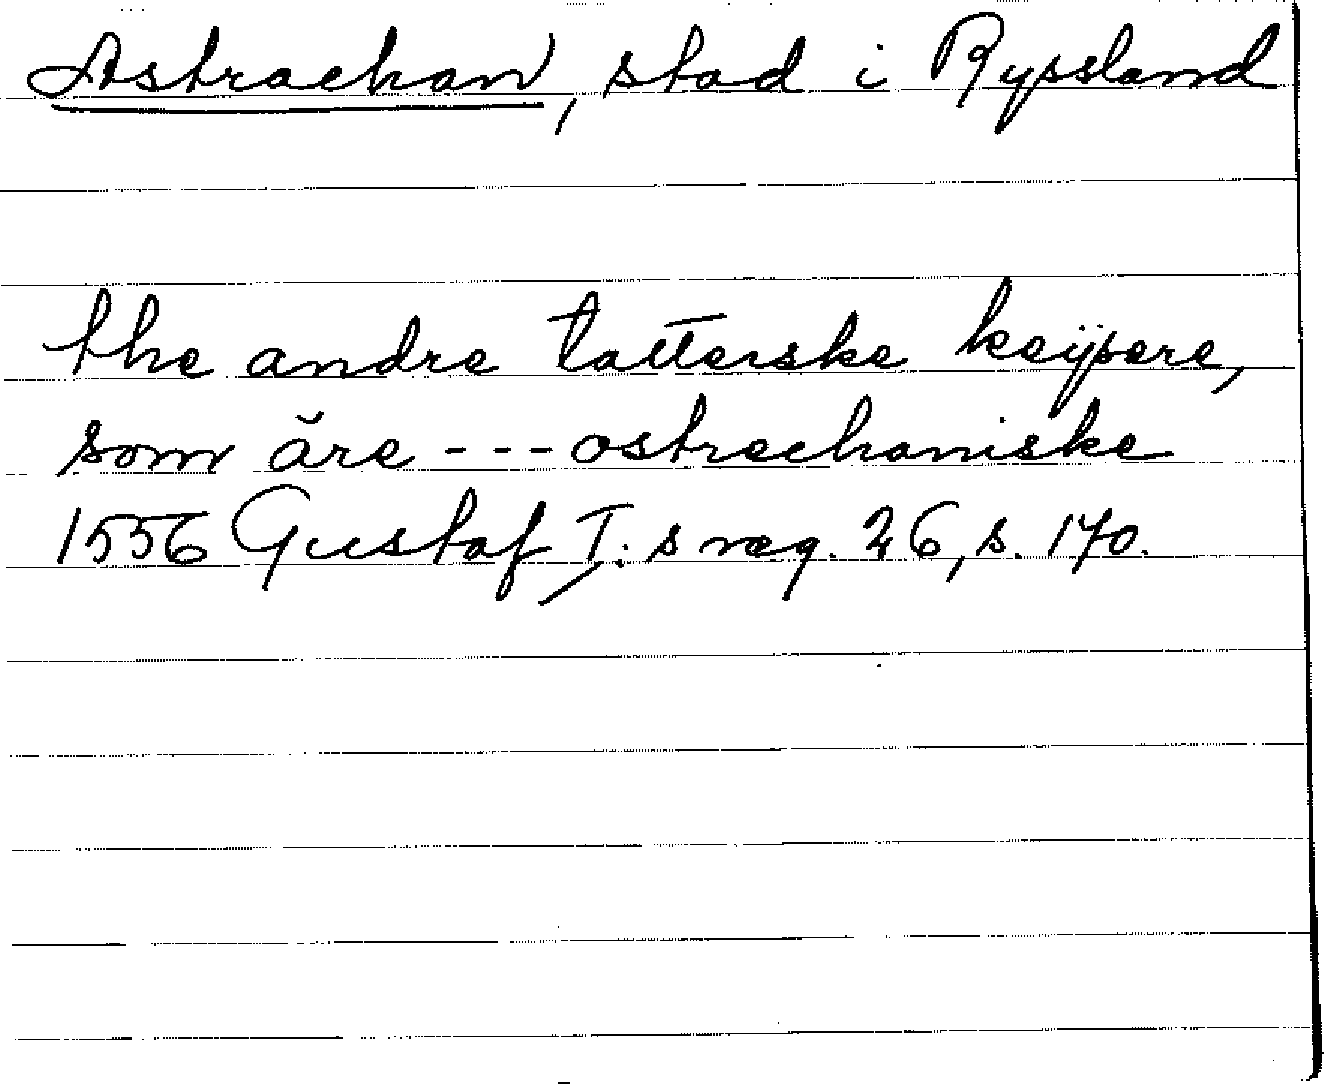 Astrachan, stad i Ryssland
the andre tatterske keijsere,
som äre - - - astrachaniske
1556 Gustaf I:s reg. 26, s. 170.